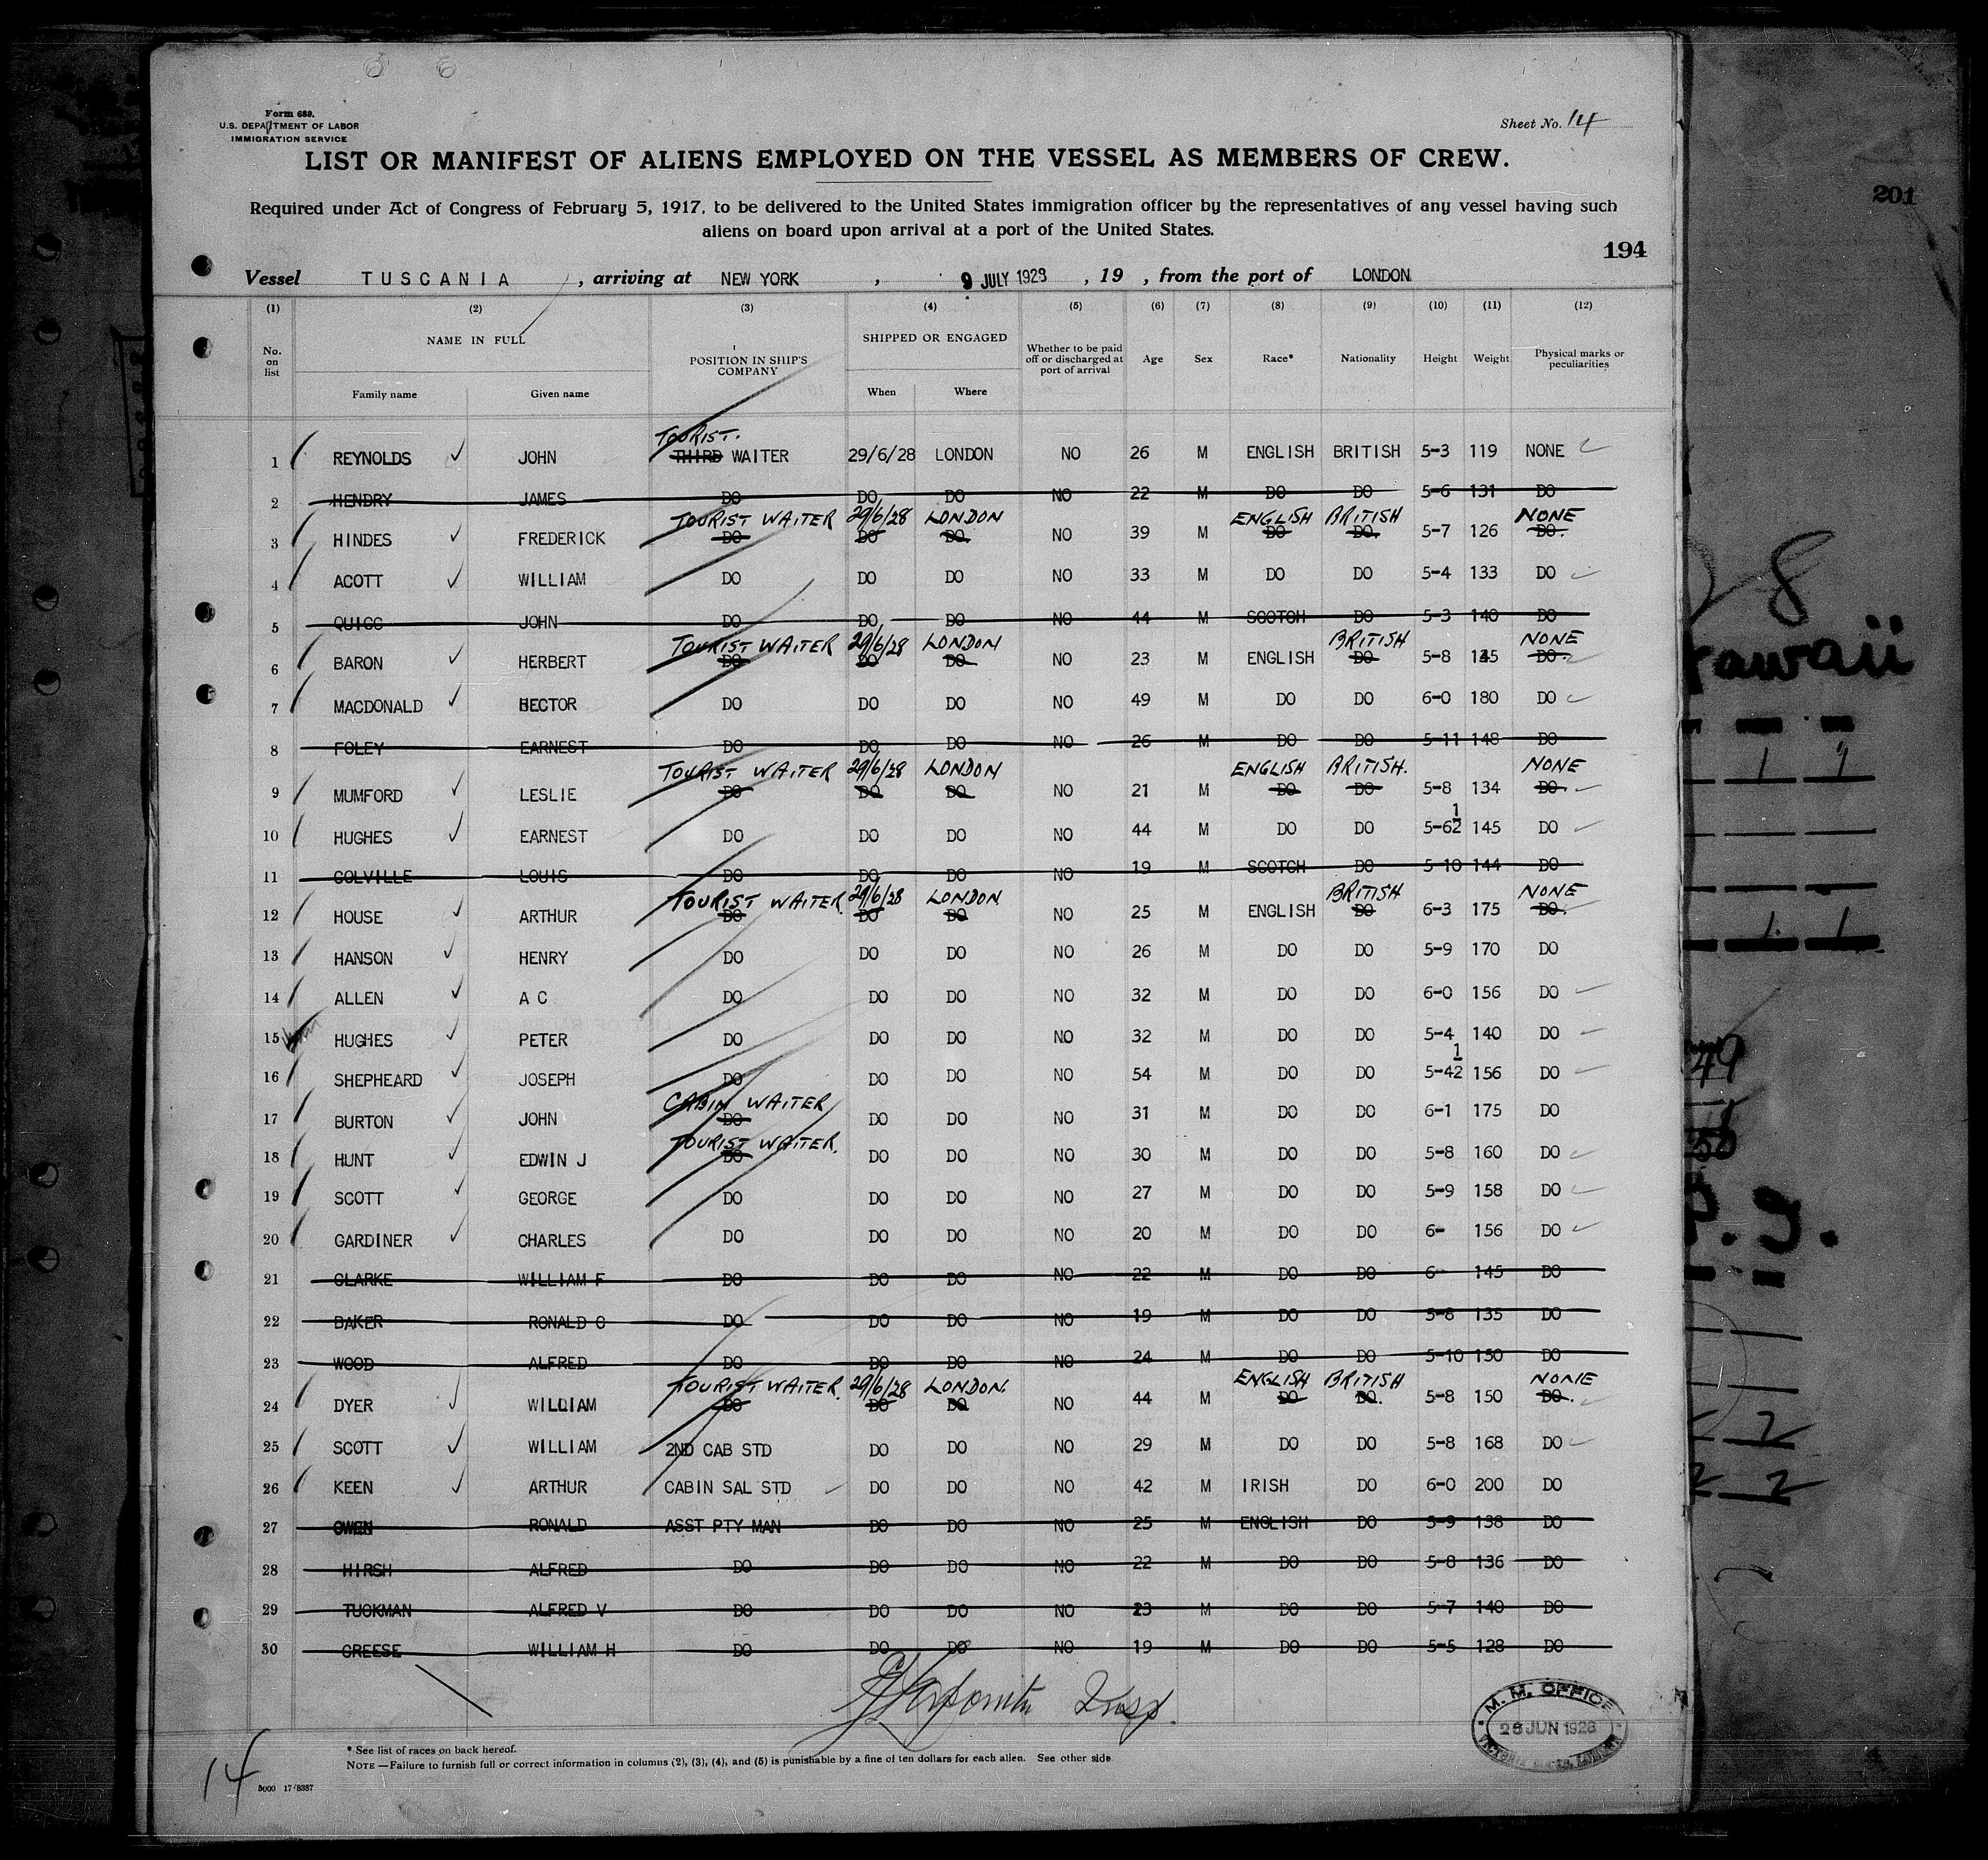 Form 680.
U.S. DEPARTMENT OF LABOR
IMMIGRATION SERVICE
Sheet No. 14
LIST OR MANIFEST OF ALIENS EMPLOYED ON THE VESSEL AS MEMBERS OF CREW.
201
Required under Act of Congress of February 5, 1917, to be delivered to the United States immigration officer by the representatives of any vessel having such
aliens on board upon arrival at a port of the United States.
194
Vessel TUSCANIA , arriving at NEW YORK , 9 JULY 1928 , 19 , from the port of LONDON
(1) (2) (3) (4) (5) (6) (7) (8) (9) (10) (11) (12)
No. on list NAME IN FULL Family name Given name POSITION IN SHIP'S COMPANY SHIPPED OR ENGAGED When Where Whether to be paid off or discharged at port of arrival Age Sex Race* Nationality Height Weight Physical marks or peculiarities
TOURIST.
1 REYNOLDS JOHN THIRD WAITER 29/6/28 LONDON NO 26 M ENGLISH BRITISH 5-3 119 NONE
2 HENDRY JAMES DO DO DO NO 22 M DO DO 5-6 131 DO
TOURIST WAITER 29/6/28 LONDON ENGLISH BRITISH NONE
3 HINDES FREDERICK DO DO DO. NO 39 M DO DO. 5-7 126 DO.
4 ACOTT WILLIAM DO DO DO NO 33 M DO DO 5-4 133 DO
5 QUIGG JOHN DO DO DO NO 44 M SCOTCH DO 5-3 140 DO
TOURIST WAITER 29/6/28 LONDON BRITISH NONE
6 BARON HERBERT DO DO DO. NO 23 M ENGLISH DO 5-8 DO.
7 MACDONALD HECTOR DO DO DO NO 49 M DO DO 6-0 180 DO
8 FOLEY EARNEST DO DO DO NO 26 M DO DO 5-11 148 DO
TOURIST WAITER 29/6/28 LONDON ENGLISH BRITISH. NONE
9 MUMFORD LESLIE DO DO DO NO 21 M DO DO 5-8 134 DO.
10 HUGHES EARNEST DO DO DO NO 44 M DO DO 5-6½ 145 DO
11 COLVILLE LOUIS DO DO DO NO 19 M SCOTCH DO 5-10 144 DO
TOURIST WAITER. 29/6/28 LONDON BRITISH NONE
12 HOUSE ARTHUR DO DO DO NO 25 M ENGLISH DO 6-3 175 DO.
13 HANSON HENRY DO DO DO NO 26 M DO DO 5-9 170 DO
14 ALLEN A C DO DO DO NO 32 M DO DO 6-0 156 DO
15 HUGHES PETER DO DO DO NO 32 M DO DO 5-4 140 DO
16 SHEPHEARD JOSEPH DO DO DO NO 54 M DO DO 5-4½ 156 DO
CABIN WAITER
17 BURTON JOHN DO DO DO NO 31 M DO DO 6-1 175 DO
TOURIST WAITER.
18 HUNT EDWIN J DO DO DO NO 30 M DO DO 5-8 160 DO
19 SCOTT GEORGE DO DO DO NO 27 M DO DO 5-9 158 DO
20 GARDINER CHARLES DO DO DO NO 20 M DO DO 6- 156 DO
21 CLARKE WILLIAM F DO DO DO NO 22 M DO DO 6- 145 DO
22 BAKER RONALD DO DO DO NO 19 M DO DO 5-8 135 DO
23 WOOD ALFRED DO DO DO NO 24 M DO DO 5-10 150 DO
TOURIST WAITER. 29/6/28 LONDON. ENGLISH BRITISH NONE
24 DYER WILLIAM DO DO DO NO 44 M DO DO. 5-8 150 DO.
25 SCOTT WILLIAM 2ND CAB STD DO DO NO 29 M DO DO 5-8 168 DO
26 KEEN ARTHUR CABIN SAL STD DO DO NO 42 M IRISH DO 6-0 200 DO
27 OWEN RONALD ASST PTY MAN DO DO NO 25 M ENGLISH DO 5-9 138 DO
28 HIRSH ALFRED DO DO DO NO 22 M DO DO 5-8 136 DO
29 TUCKMAN ALFRED V DO DO DO NO 23 M DO DO 5-7 140 DO
30 CREESE WILLIAM H DO DO DO NO 19 M DO DO 5-5 128 DO
Insp.
M. M. OFFICE
26 JUN 1928
* See list of races on back hereof.
NOTE.—Failure to furnish full or correct information in columns (2), (3), (4), and (5) is punishable by a fine of ten dollars for each alien. See other side
14
5000 17/8387